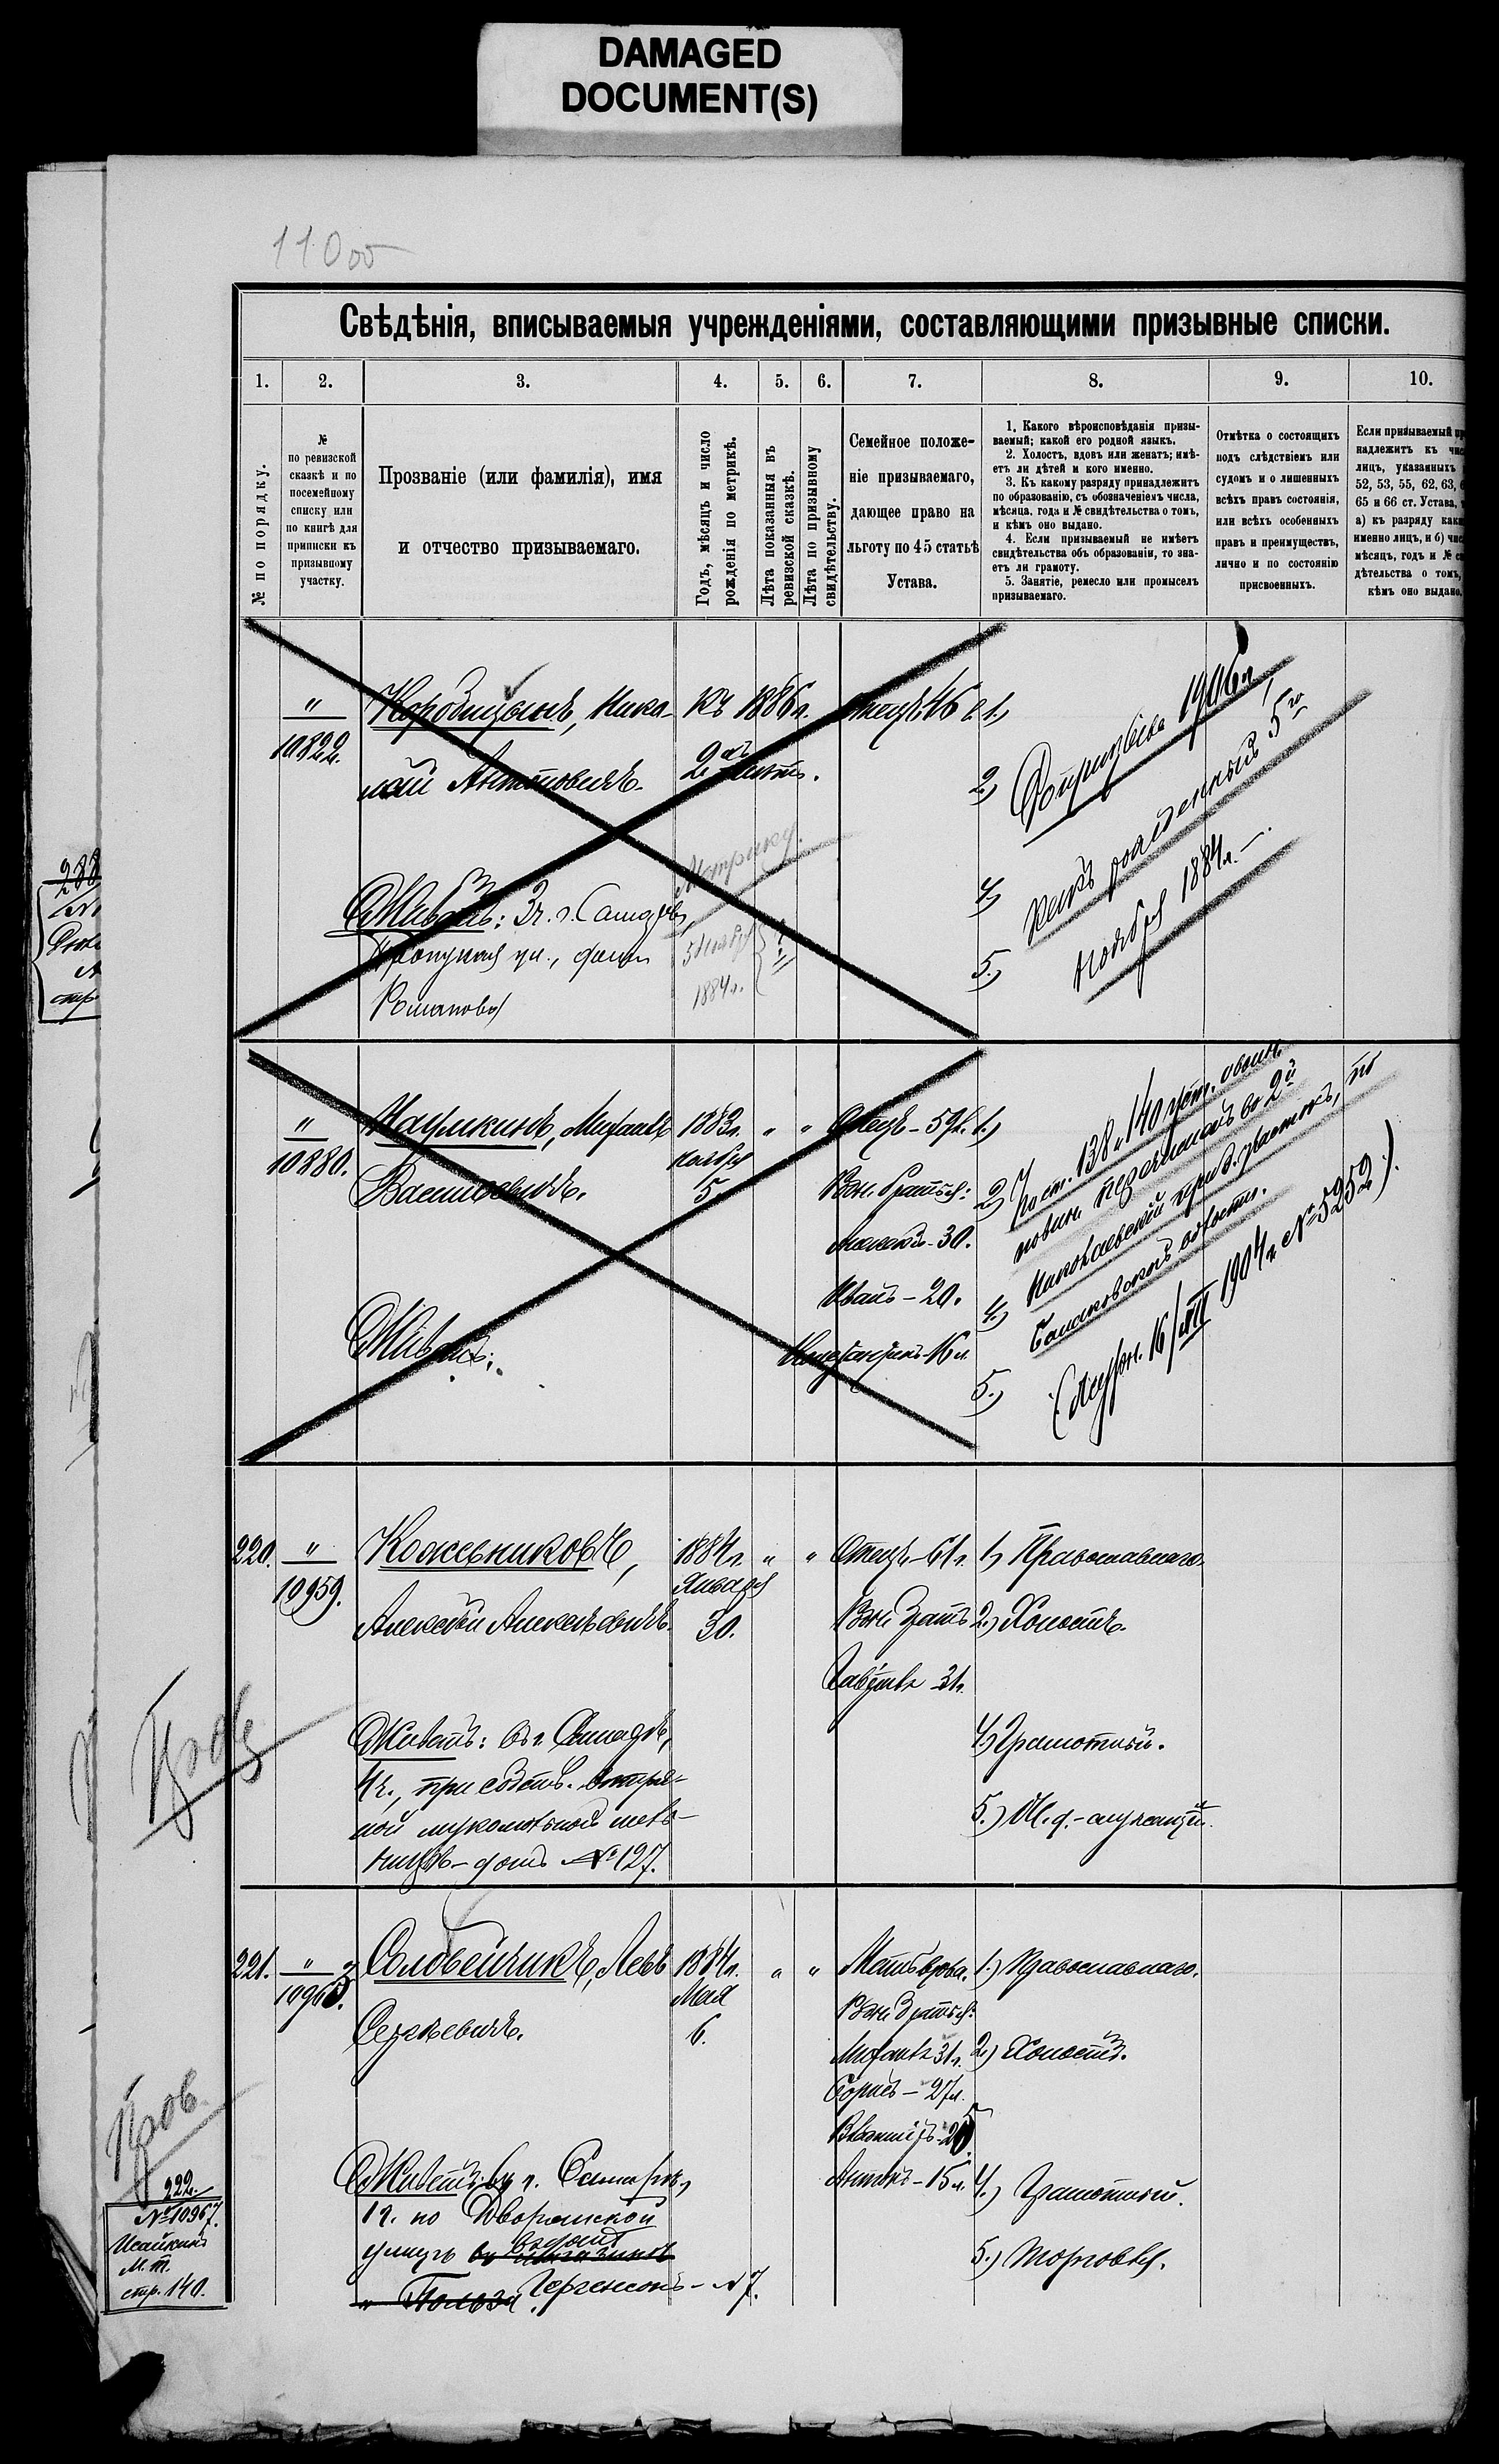 DAMAGED
DOCUMENT(S)
1100
Свѣдѣнія, вписываемыя учрежденіями, составляющими призывные списки.
1. 2. 3. 4. 5. 6. 7. 8. 9. 10.
№ по порядку.
№
по ревизской
сказкѣ и по
посемейному
списку или
по книгѣ для
приписки къ
призывному
участку.
Прозваніе (или фамилія), имя
и отчество призываемаго.
Годъ, мѣсяцъ и число
рожденія по метрикѣ.
Лѣта показанныя въ
ревизской сказкѣ.
Лѣта по призывному
свидѣтельству.
Семейное положе-
ніе призываемаго,
дающее право на
льготу по 45 статьѣ
Устава.
1. Какого вѣроисповѣданія призы-
ваемый; какой его родной языкъ.
2. Холостъ, вдовъ или женатъ; имѣ-
етъ ли дѣтей и кого именно.
3. Къ какому разряду принадлежитъ
по образованію, съ обозначеніемъ числа,
мѣсяца, года и № свидѣтельства о томъ,
и кѣмъ оно выдано.
4. Если призываемый не имѣетъ
свидѣтельства объ образованіи, то зна-
етъ ли грамоту.
5. Занятіе, ремесло или промыселъ
призываемаго.
Отмѣтка о состоящихъ
подъ слѣдствіемъ или
судомъ и о лишенныхъ
всѣхъ правъ состоянія,
или всѣхъ особенныхъ
правъ и преимуществъ,
лично и по состоянію
присвоенныхъ.
Если призываемый
надлежитъ къ
лицъ, указанныхъ
52, 53, 55, 62, 63,
65 и 66 ст. Устава,
а) къ разряду
именно лицъ, и б)
мѣсяцъ, годъ и №
дѣтельства о томъ,
кѣмъ оно выдано.
"
10822.
Коробицынъ, Нико-
лай Антоновичъ.
Къ 1886 г.
2 лѣтъ.
Отецъ 46 л.
1)
2)
4)
5)
1906 г.
какъ рожденный 5го
ноября 1884 г.
Живетъ: 3 ч. г. Самары
ул., домъ
Романова
Метрику
5 Ноября
1884 г.
"
10880.
Наумкинъ, Михаилъ
Васильевичъ.
1883 г.
Ноября
5.
" "
Отецъ - 59 л.
Родн. братья:
Алексѣй - 30.
Иванъ - 20.
16 л.
Живетъ:
1)
2)
4)
5)
По ст. 138 и 140 уст. о воин.
повин. перечисленъ во 2й
Николаевскій призв. участокъ, по
Балаковской волости.
(Журн. 16/VIII 1904 г. № 5252).
220.
"
10959.
Кожевниковъ,
Алексѣй Алексѣевичъ.
1884 г.
Января
30.
" "
Отецъ - 61 г.
Родн. братъ
31 г.
1) Православнаго.
2) Холостъ.
4) Грамотный.
5)
Живетъ: въ г. Самарѣ,
4 ч., при собств.
ной мукомольной мель-
ницѣ - домъ № 127.
221.
"
10963.
Соловейчикъ, Левъ
Сергѣевичъ.
1884 г.
Мая
6.
" "
Мать вдова.
Родн. братья:
Михаилъ 31 г.
Борисъ - 27 л.
Владиміръ - 25
Антонъ - 15 л.
1) Православнаго.
2) Холостъ.
4) Грамотный.
5) Торговля.
Живетъ: въ г. Самарѣ,
1 ч. по Дворянской
улицѣ въ магазинѣ
въ домѣ
"Польза" - № 7.
Пров.
Пров.
222.
№ 10967.
Исайкинъ
М. т.
стр. 140.